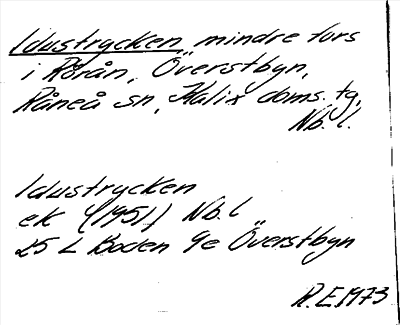 Idustrycken, mindre fors
i Rörån, Överstbyn,
Råneå sn, Kalix doms. tg,
Nb. l.
Idustrycken
ek (1951) Nb. l
25 L Boden 9e Överstbyn
R.E. 1973